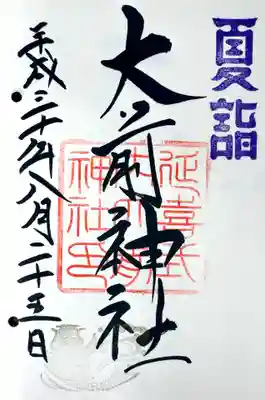 夏詣
大前神社
延喜式内大前神社印
平成二十九年八月二十五日